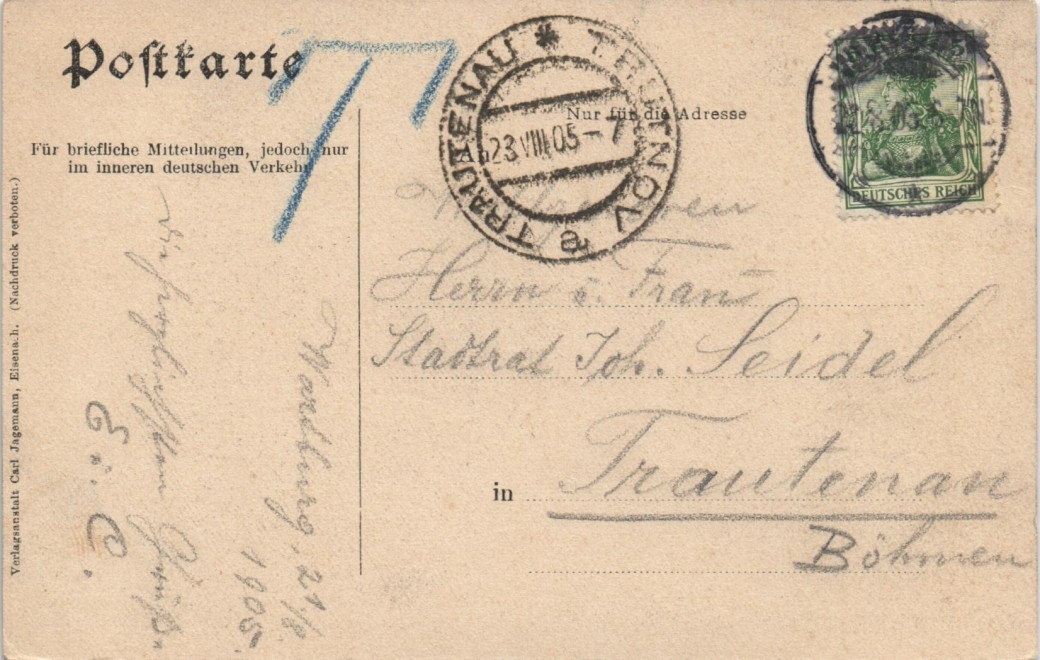 Postkarte
Für briefliche Mitteilungen, jedoch nur
im inneren deutschen Verkehr
Nur für die Adresse
An
TRAUTENAU * TRUTNOV
23 VIII 05-7
e
5
DEUTSCHES REICH
Herrn u. Frau
Stadtrat Joh. Seidel
in Trautenau
Böhmen
Wartburg, 21/8
1905.
Die herzlichsten Grüße
E. u. C.
Verlagsanstalt Carl Jagemann, Eisenach. (Nachdruck verboten.)